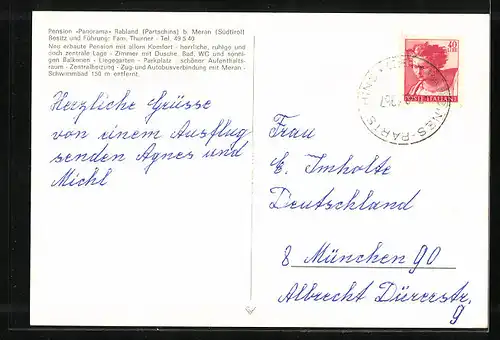 Pension »Panorama« Rabland (Partschins) b. Meran (Südtirol)
Besitz und Führung: Fam. Thurner - Tel. 49 5 40
Neu erbaute Pension mit allem Komfort - herrliche, ruhige und
doch zentrale Lage - Zimmer mit Dusche, Bad, WC und sonni-
gen Balkonen - Liegegarten - Parkplatz - schöner Aufenthalts-
raum - Zentralheizung - Zug-und Autobusverbindung mit Meran -
Schwimmbad 150 m entfernt.
Herzliche Grüsse
von einem Ausflug
senden Agnes und
Michl
40
LIRE
POSTE ITALIANE
Frau
E. Imholte
Deutschland
8 München 90
Albrecht Dürerstr.
9